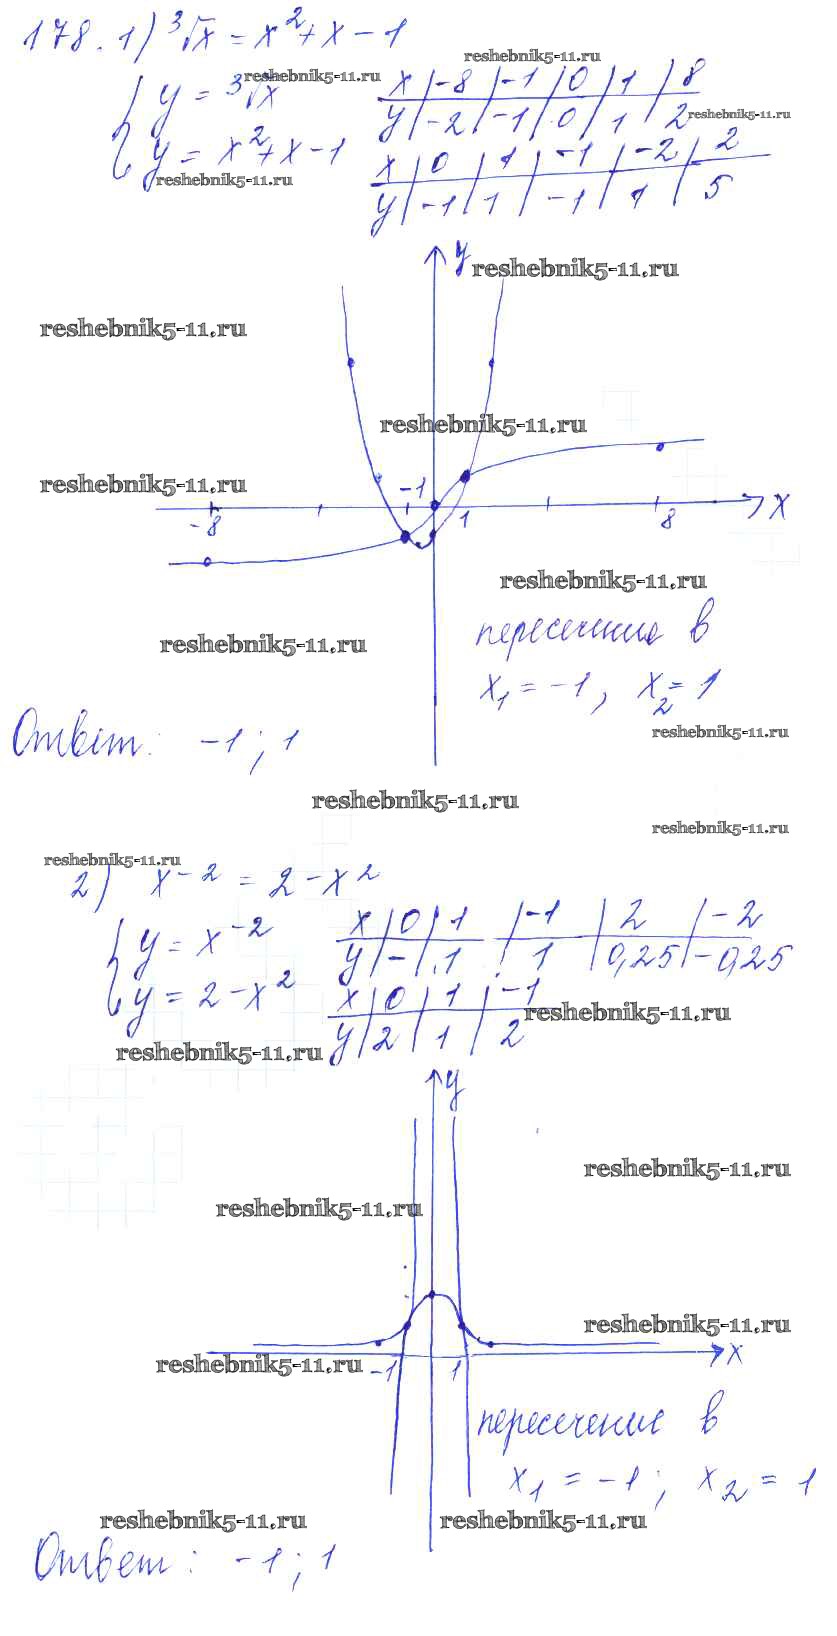 178. 1) ³√x = x² + x - 1
reshebnik5-11.ru
reshebnik5-11.ru
{ y = ³√x
x | -8 | -1 | 0 | 1 | 8
y | -2 | -1 | 0 | 1 | 2
reshebnik5-11.ru
y = x² + x - 1
reshebnik5-11.ru
x | 0 | 1 | -1 | -2 | 2
y | -1 | 1 | -1 | 1 | 5
y
reshebnik5-11.ru
reshebnik5-11.ru
reshebnik5-11.ru
reshebnik5-11.ru
-1
-8 1 8 x
reshebnik5-11.ru
reshebnik5-11.ru
пересечение в
x₁ = -1, x₂ = 1
Ответ: -1; 1
reshebnik5-11.ru
reshebnik5-11.ru
reshebnik5-11.ru
reshebnik5-11.ru
2) x⁻² = 2 - x²
{ y = x⁻²
x | 0 | 1 | -1 | 2 | -2
y | - | 1 | 1 | 0,25 | -0,25
y = 2 - x²
x | 0 | 1 | -1
y | 2 | 1 | 2
reshebnik5-11.ru
reshebnik5-11.ru
y
reshebnik5-11.ru
reshebnik5-11.ru
reshebnik5-11.ru
reshebnik5-11.ru
-1 1 x
пересечение в
x₁ = -1; x₂ = 1
reshebnik5-11.ru reshebnik5-11.ru
Ответ: -1; 1